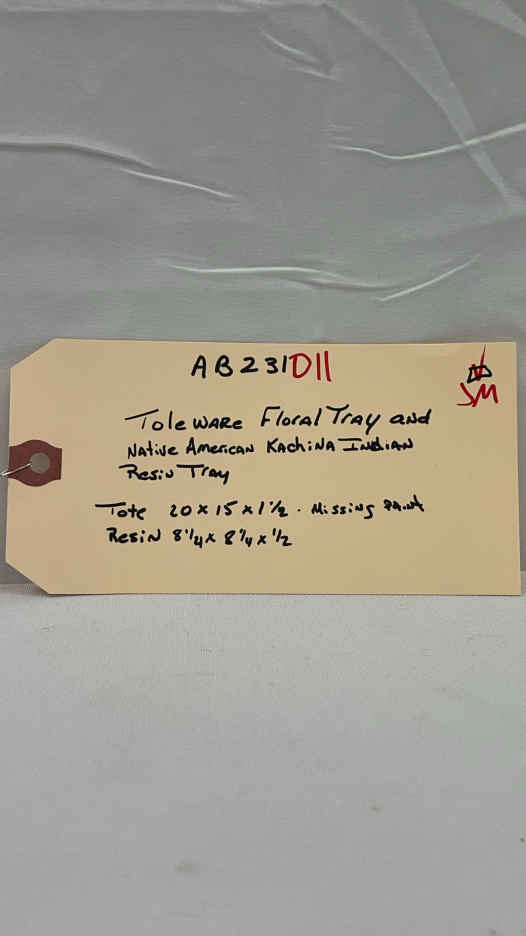 AB231D11
SM
Toleware Floral Tray and
Native American Kachina Indian
Resin Tray
Tote 20 x 15 x 1 1/2 . Missing Paint
Resin 8 1/4 x 8 1/4 x 1/2